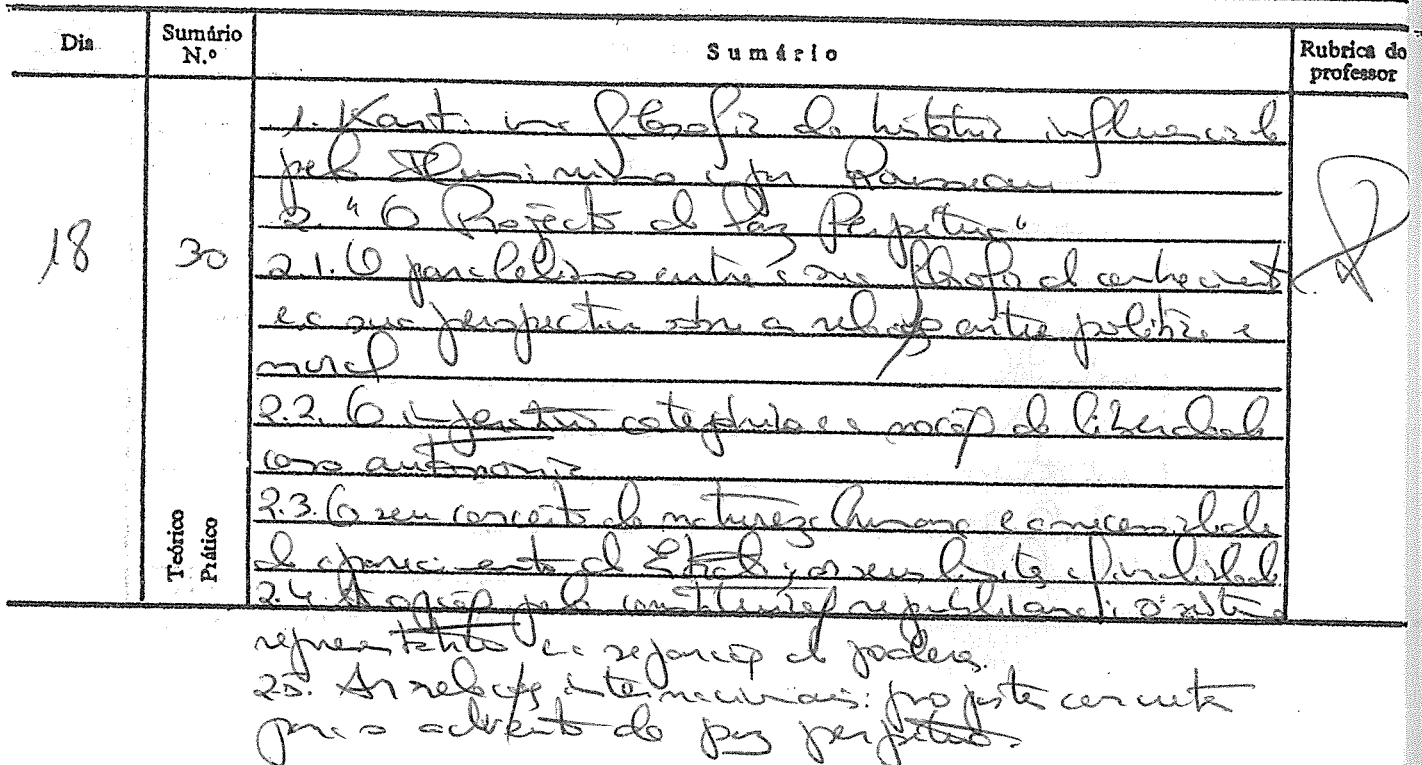 Dia
Sumário N.º
Sumário
Rubrica do professor
18
30
Teórico
Prático
1. Kant: uma filosofia da história influenciada
pelo Iluminismo e por Rousseau
2. "O Projecto de Paz Perpétua"
2.1. O paralelismo entre a sua filosofia do conhecimento
e a sua perspectiva sobre a relação entre política e
moral
2.2. O imperativo categórico e a noção de liberdade
como autonomia
2.3. O seu conceito de natureza humana e a necessidade
do aparecimento do Estado; os seus limites e finalidade
2.4. A opção pela constituição republicana; o sistema
representativo e a separação de poderes.
2.5. As relações internacionais: propostas concretas
para o advento da paz perpétua.